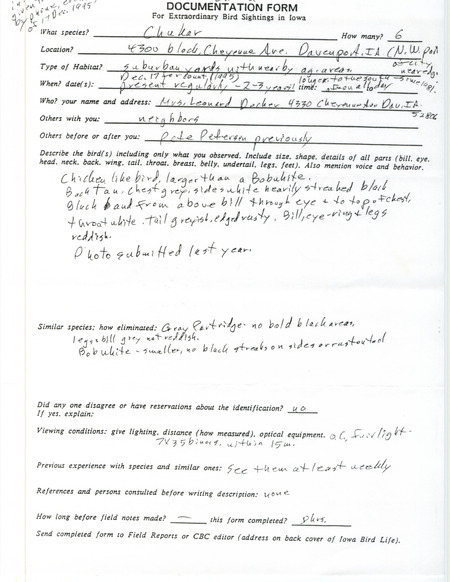 of 17 Dec. 1995
DOCUMENTATION FORM
For Extraordinary Bird Sightings in Iowa
What species? Chukar How many? 6
Location? 4300 block, Cheyenne Ave. Davenport, IA (N.W. part of city
Type of Habitat? suburban yards with nearby ag. areas near edge
Dec. 17 for count (1995) to the south - since 1981.
When? date(s): present regularly - 2-3 years! time: all day
Who? your name and address: Mrs. Leonard Decker 4330 Cheyenne Dav. IA.
Others with you: neighbors 52806
Others before or after you: Pete Petersen previously
Describe the bird(s) including only what you observed. Include size, shape, details of all parts (bill, eye,
head, neck, back, wing, tail, throat, breast, belly, undertail, legs, feet). Also mention voice and behavior.
Chicken like bird, larger than a Bobwhite.
Back tan, chest grey, sides white heavily streaked black
Black band from above bill through eye & to top of chest,
throat white. Tail greyish, edged rusty. Bill, eye-ring & legs
reddish.
Photo submitted last year.
Similar species; how eliminated: Gray Partridge - no bold black areas,
legs & bill grey not reddish.
Bobwhite - smaller, no black streaks on sides or rusty tail
Did any one disagree or have reservations about the identification? no
If yes, explain:
Viewing conditions: give lighting, distance (how measured), optical equipment. o.c, fair light -
7x35 binocs, within 15m.
Previous experience with species and similar ones: See them at least weekly
References and persons consulted before writing description: none
How long before field notes made? — this form completed? 8 hrs.
Send completed form to Field Reports or CBC editor (address on back cover of Iowa Bird Life).